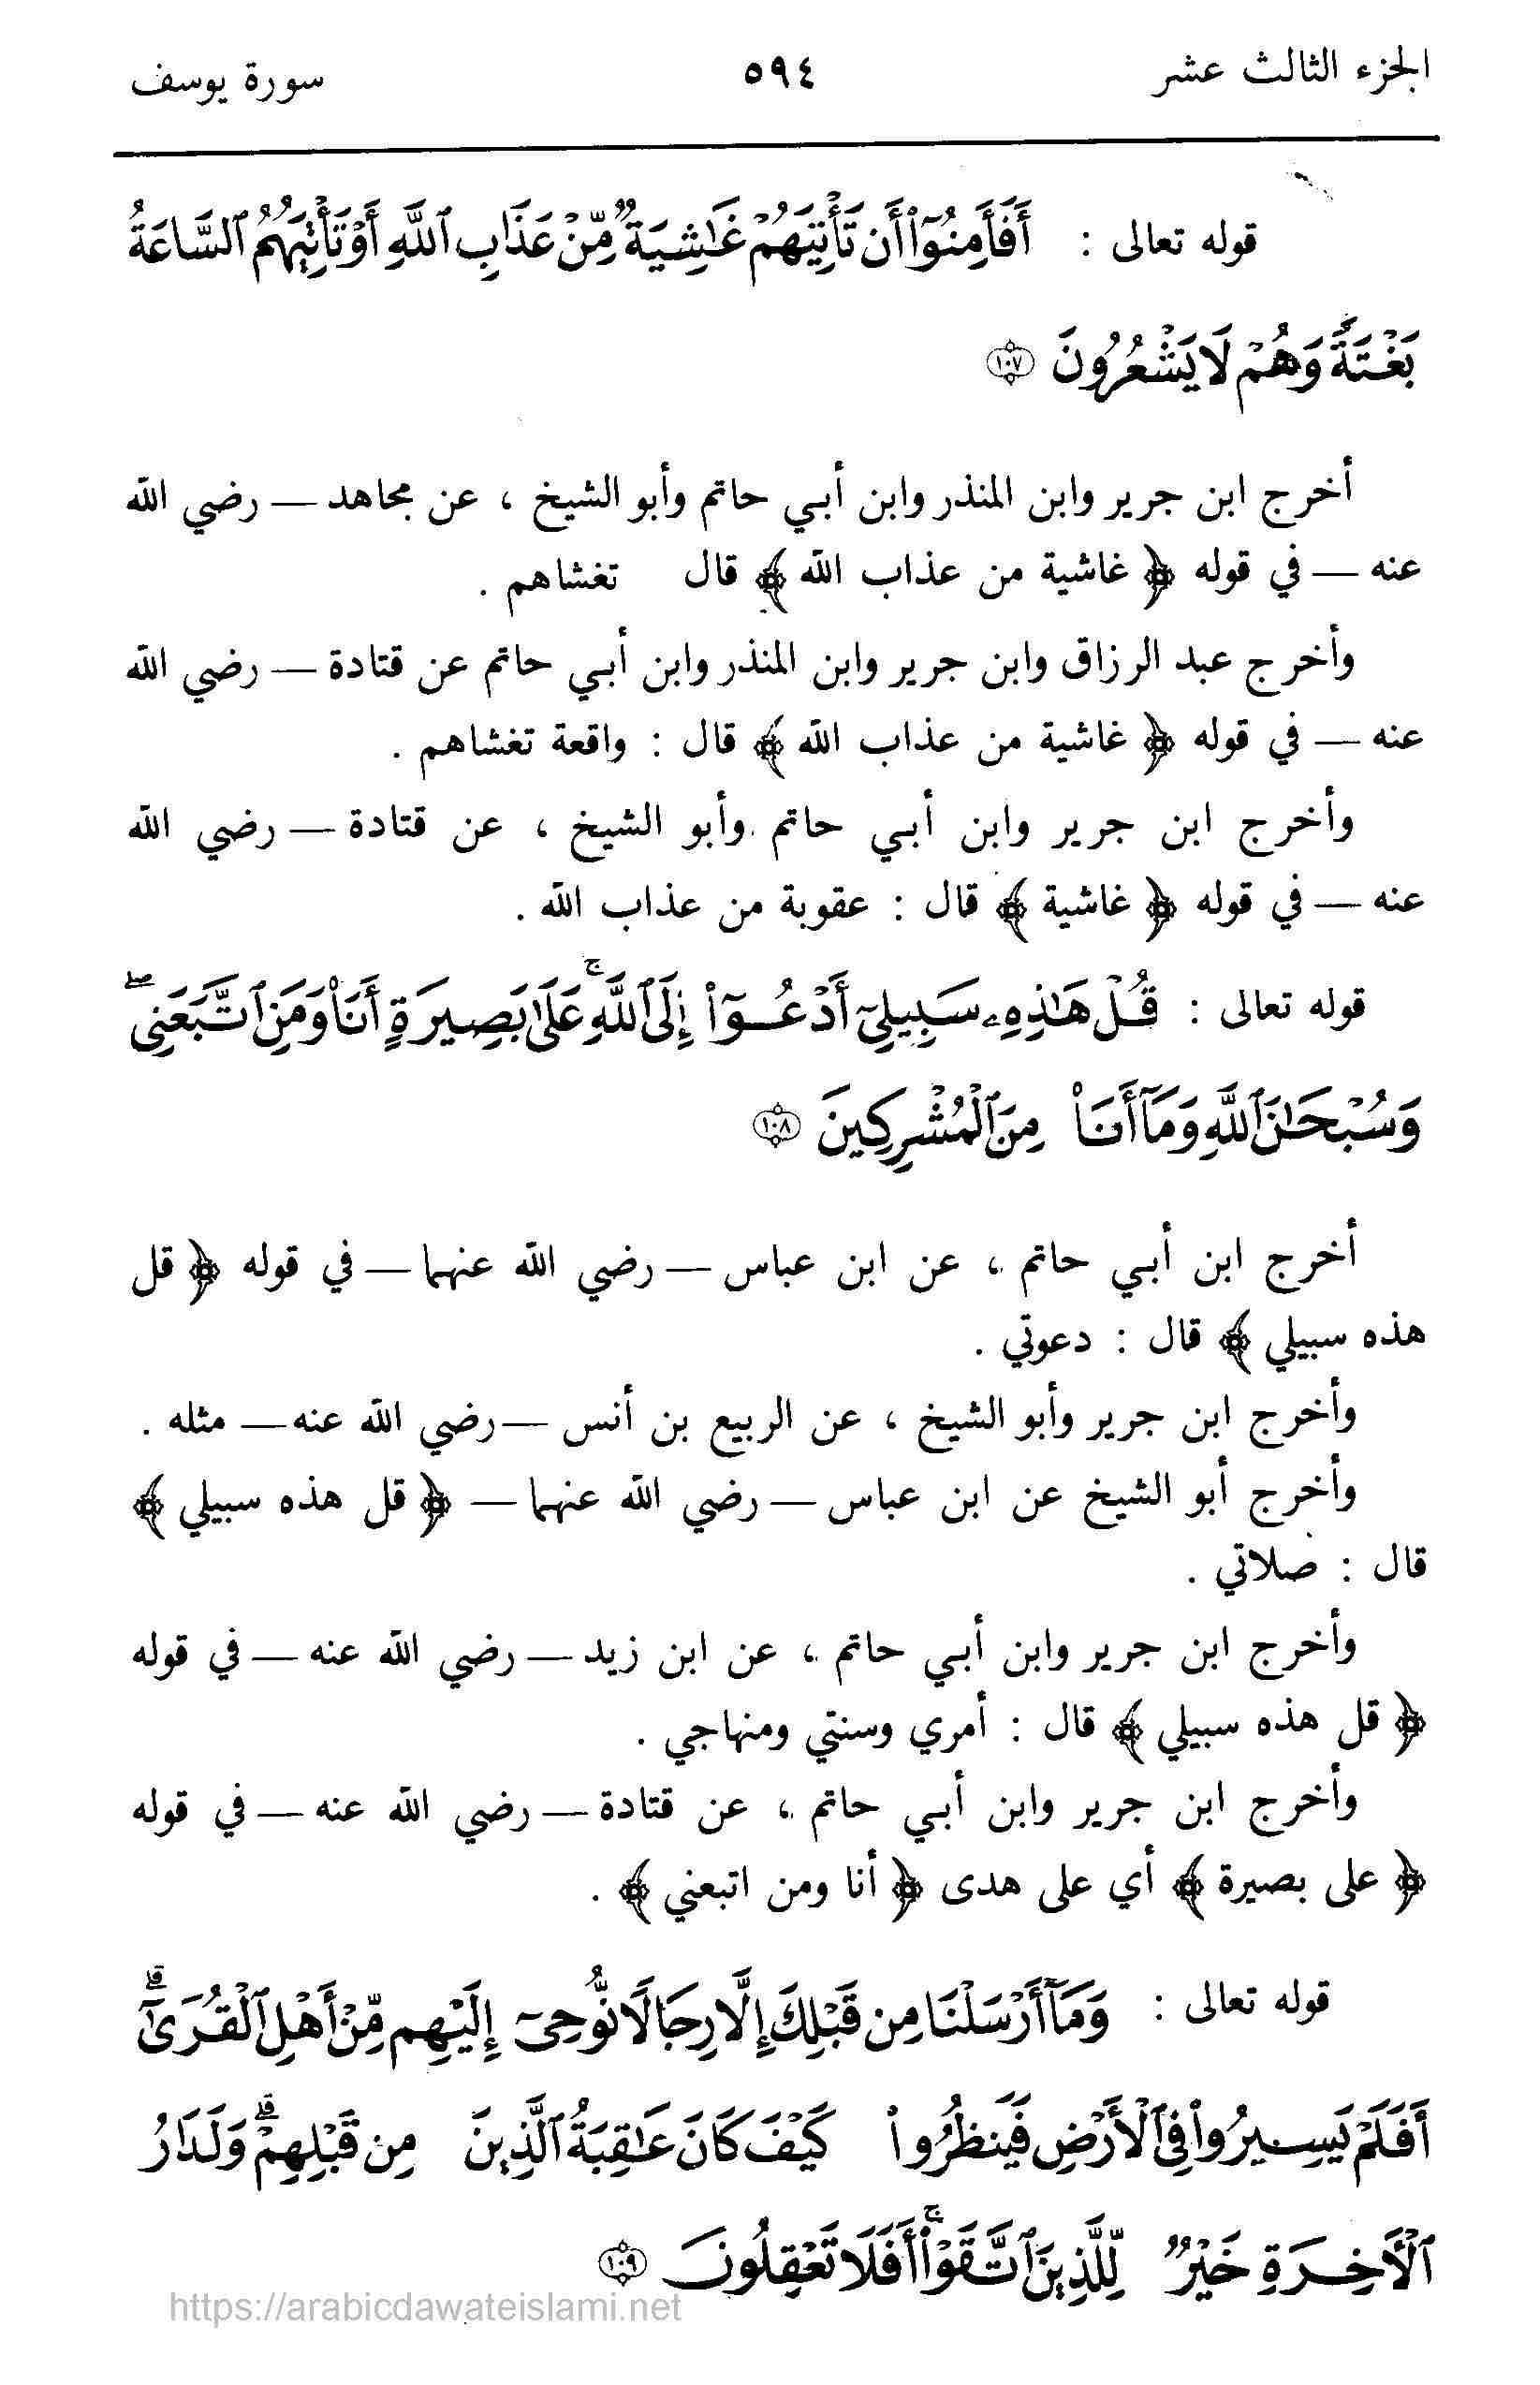 الجزء الثالث عشر ٥٩٤ سورة يوسف
قوله تعالى : أَفَأَمِنُوٓاْ أَن تَأْتِيَهُمْ غَٰشِيَةٌ مِّنْ عَذَابِ ٱللَّهِ أَوْ تَأْتِيَهُمُ ٱلسَّاعَةُ
بَغْتَةً وَهُمْ لَا يَشْعُرُونَ ١٠٧
أخرج ابن جرير وابن المنذر وابن أبي حاتم وأبو الشيخ ، عن مجاهد — رضي الله
عنه — في قوله ﴿ غاشية من عذاب الله ﴾ قال تغشاهم .
وأخرج عبد الرزاق وابن جرير وابن المنذر وابن أبي حاتم عن قتادة — رضي الله
عنه — في قوله ﴿ غاشية من عذاب الله ﴾ قال : واقعة تغشاهم .
وأخرج ابن جرير وابن أبي حاتم وأبو الشيخ ، عن قتادة — رضي الله
عنه — في قوله ﴿ غاشية ﴾ قال : عقوبة من عذاب الله .
قوله تعالى : قُلْ هَٰذِهِۦ سَبِيلِىٓ أَدْعُوٓاْ إِلَى ٱللَّهِ ۚ عَلَىٰ بَصِيرَةٍ أَنَا۠ وَمَنِ ٱتَّبَعَنِى ۖ
وَسُبْحَٰنَ ٱللَّهِ وَمَآ أَنَا۠ مِنَ ٱلْمُشْرِكِينَ ١٠٨
أخرج ابن أبي حاتم ، عن ابن عباس — رضي الله عنهما — في قوله ﴿ قل
هذه سبيلي ﴾ قال : دعوتي .
وأخرج ابن جرير وأبو الشيخ ، عن الربيع بن أنس — رضي الله عنه — مثله .
وأخرج أبو الشيخ عن ابن عباس — رضي الله عنهما — ﴿ قل هذه سبيلي ﴾
قال : صلاتي .
وأخرج ابن جرير وابن أبي حاتم ، عن ابن زيد — رضي الله عنه — في قوله
﴿ قل هذه سبيلي ﴾ قال : أمري وسنتي ومنهاجي .
وأخرج ابن جرير وابن أبي حاتم ، عن قتادة — رضي الله عنه — في قوله
﴿ على بصيرة ﴾ أي على هدى ﴿ أنا ومن اتبعني ﴾ .
قوله تعالى : وَمَآ أَرْسَلْنَا مِن قَبْلِكَ إِلَّا رِجَالًا نُّوحِىٓ إِلَيْهِم مِّنْ أَهْلِ ٱلْقُرَىٰٓ ۗ
أَفَلَمْ يَسِيرُواْ فِى ٱلْأَرْضِ فَيَنظُرُواْ كَيْفَ كَانَ عَٰقِبَةُ ٱلَّذِينَ مِن قَبْلِهِمْ ۗ وَلَدَارُ
ٱلْأَخِرَةِ خَيْرٌ لِّلَّذِينَ ٱتَّقَوْاْ ۚ أَفَلَا تَعْقِلُونَ ١٠٩
https://arabicdawateislami.net